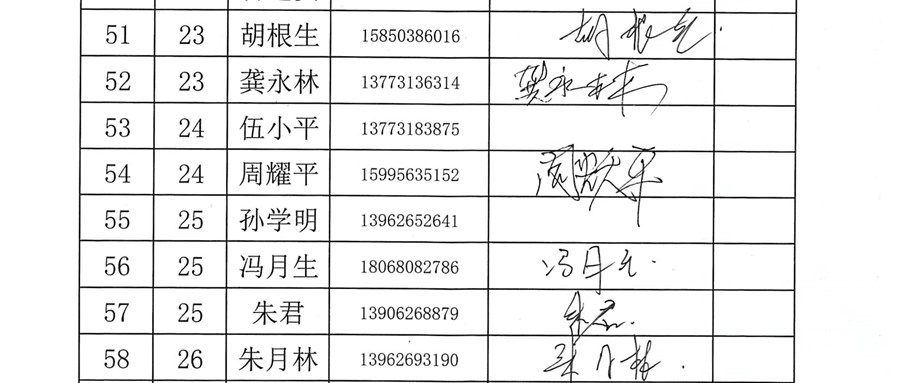 51 23 胡根生 15850386016 胡根生
52 23 龚永林 13773136314 龚永林
53 24 伍小平 13773183875
54 24 周耀平 15995635152 周耀平
55 25 孙学明 13962652641
56 25 冯月生 18068082786 冯月生
57 25 朱君 13906268879 朱君
58 26 朱月林 13962693190 朱月林